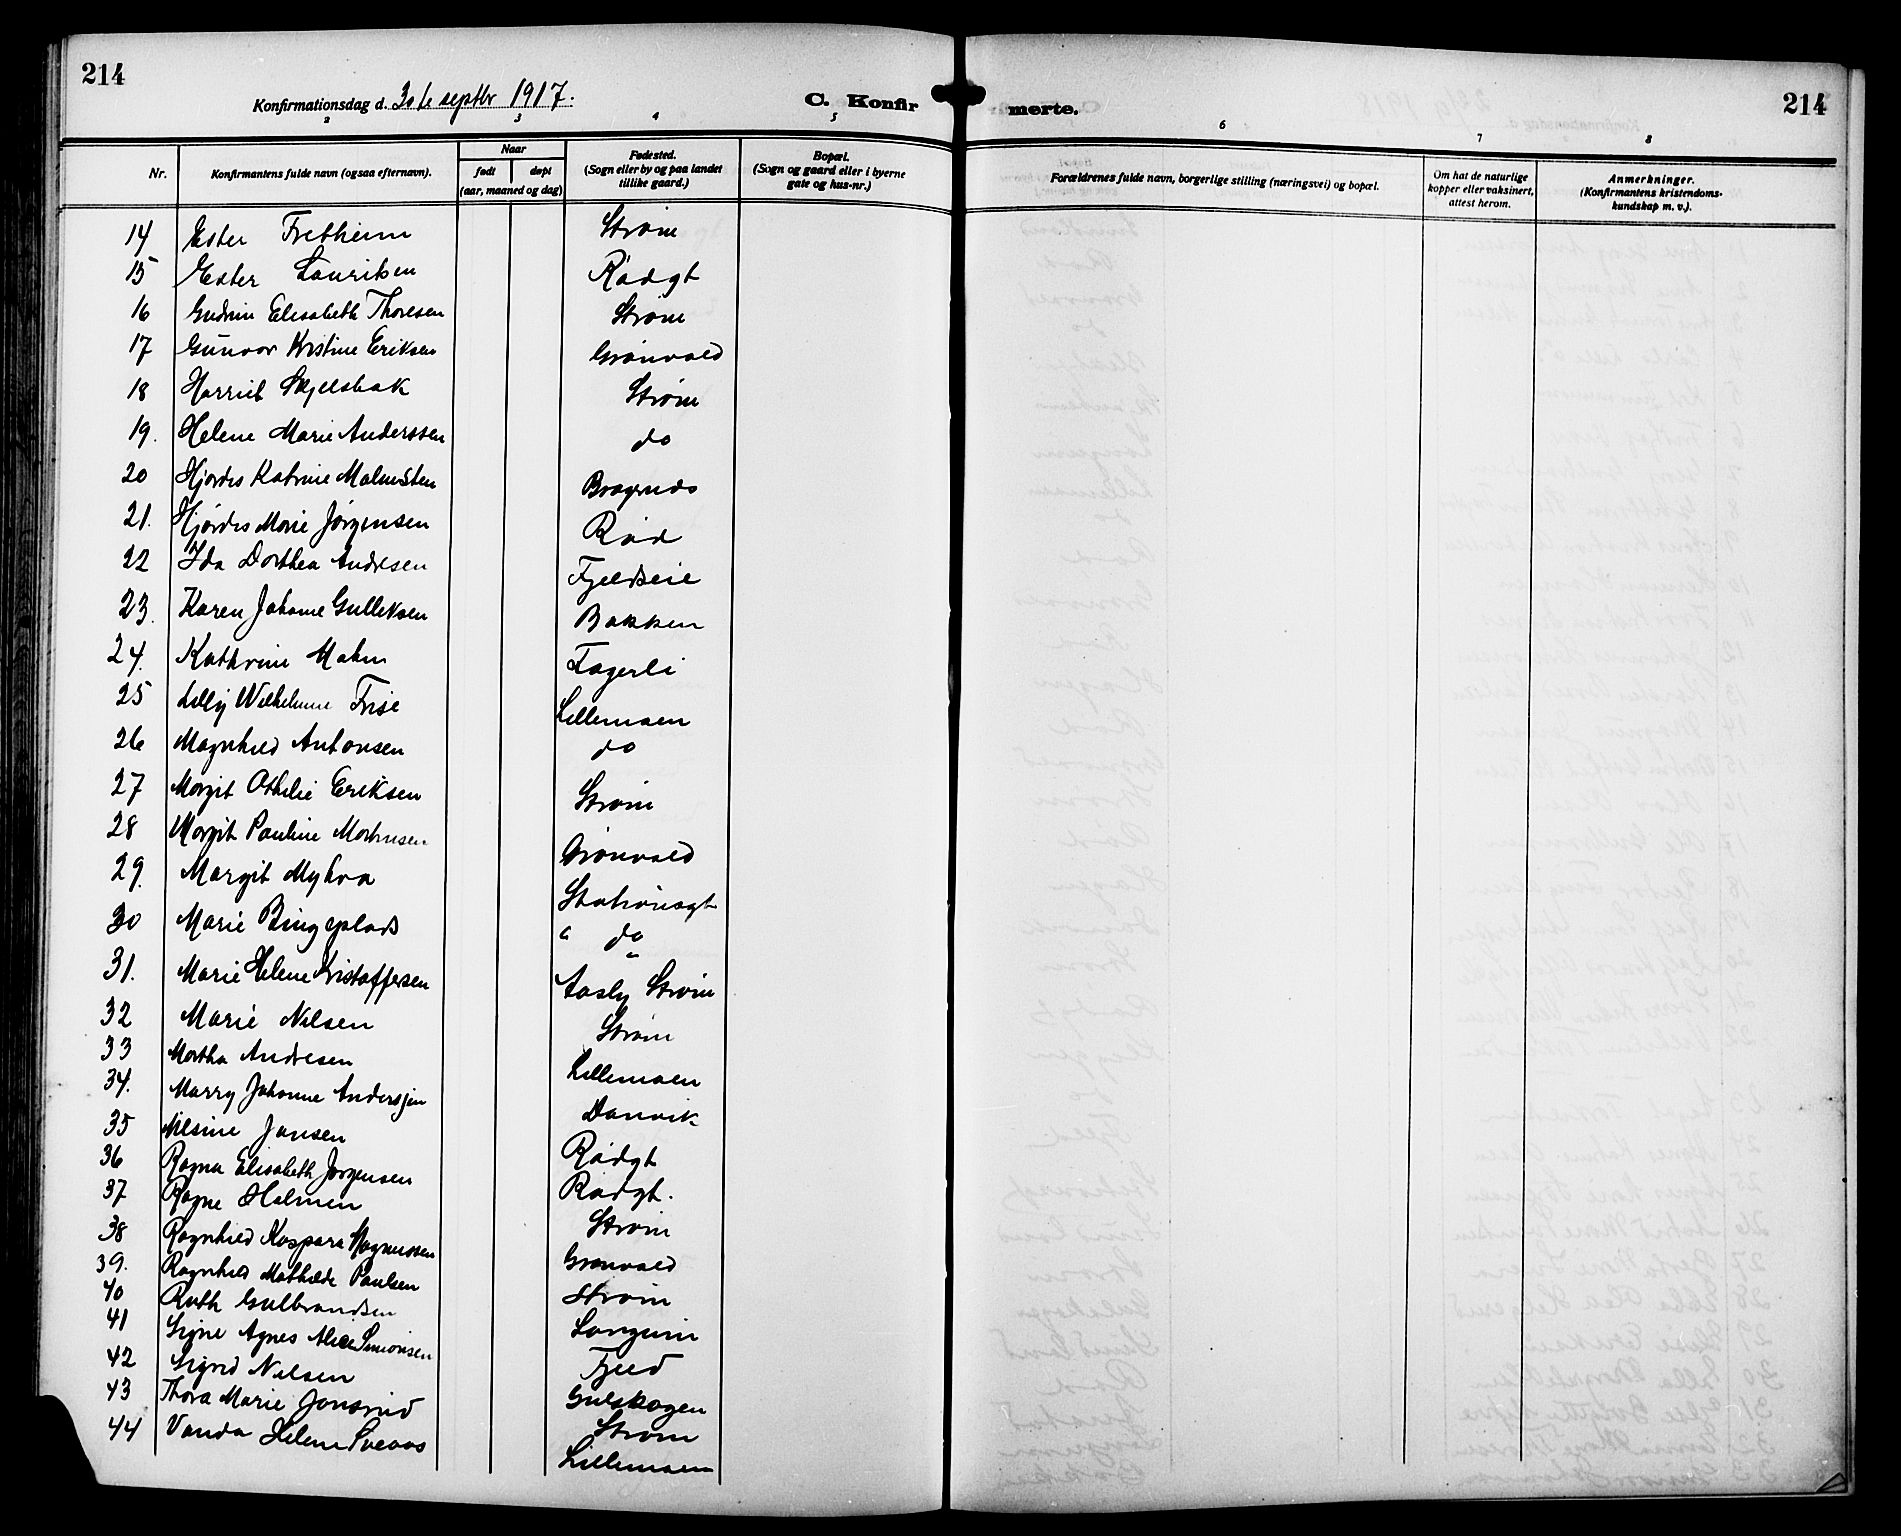 214
Konfirmationsdag d. 30te septbr 1917.
C. Konfirmerte.
214
2 3 4 5 6 7 8
Nr. Konfirmantens fulde navn (ogsaa efternavn). Naar født døpt (aar, maaned og dag) Fødested. (Sogn eller by og paa landet tillike gaard.) Bopæl. (Sogn og gaard eller i byerne gate og hus-nr.) Forældrenes fulde navn, borgerlige stilling (næringsvei) og bopæl. Om hat de naturlige kopper eller vaksinert, attest herom. Anmerkninger. (Konfirmantens kristendomskundskap m. v.).
14 Ester Fretheim Strøm
15 Ester Lauritsen Rødgt
16 Gudrun Elisabeth Thoresen Strøm
17 Gunvor Kristine Eriksen Grønvold
18 Harriet Skjelsbak Strøm
19. Helene Marie Anderssen do
20 Hjørdis Katrine Malmsten Bragrnds
21. Hjørdis Marie Jørgensen Rød
22 Ida Dorthea Andresen Fjeldseie
23. Karen Johanne Gulliksen Bakken
24. Kathrine Malm Fagerli
25 Lilly Wilhelmine Frise Lillemoen
26 Magnhild Antonsen do
27 Margit Othilie Eriksen Strøm
28 Margit Pauline Martinsen Grønvold
29. Margit Myhra Stationsgt
30 Marie Bingeplads " do "
31. Marie Helene Kristoffersen Aasly Strøm
32 Marie Nilsen Strøm
33 Martha Andresen Lillemoen
34. Marry Johanne Andersen Danvik
35 Mesine Jansen Rødgt
36 Ragna Elisabeth Jørgensen Rødgt.
37 Ragne Holmen Strøm
38 Ragnhild Kaspara Magnussen Grønvold
39. Ragnhild Mathilde Paulsen Strøm
40 Ruth Gulbrandsen Langum
41 Signe Agnes Alice Simonsen Fjeld
42 Sigrid Nilsen Gulskogen
43 Thora Marie Jonsrud Strøm
44 Vanda Helene Sveaas Lillemoen